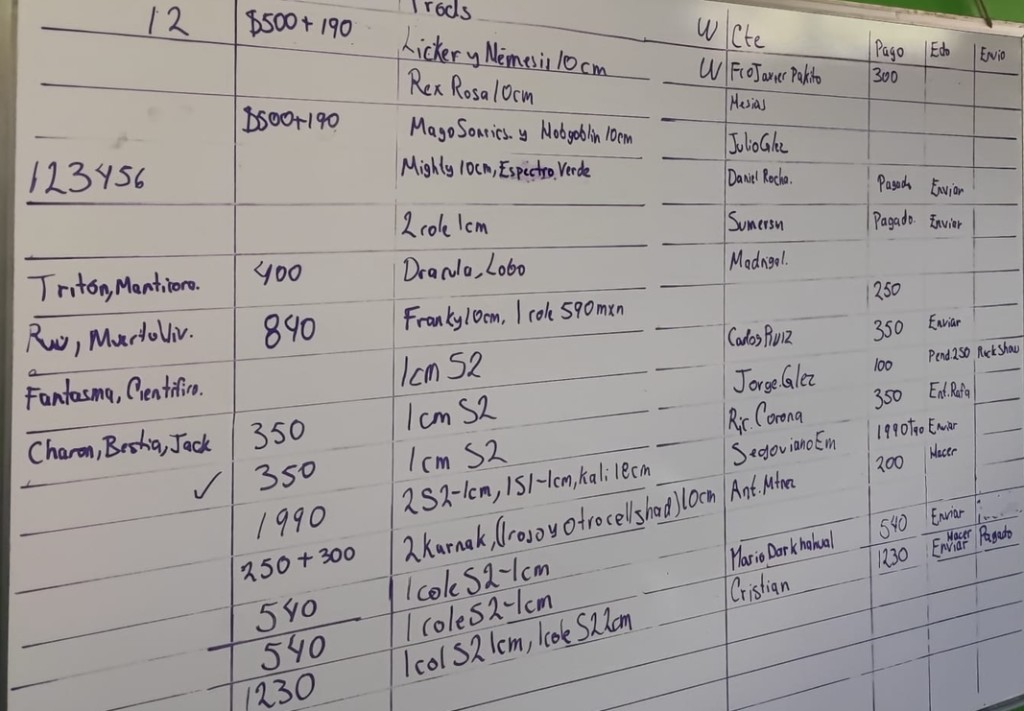 12 $500+190 Prods W Cte Pago Edo Envio
Licker y Némesis 10cm W Fco Javier Pakito 300
Rex Rosa 10cm Mesias
$500+190 Mago Y Hobgoblin 10cm Julio Glez
123456 Mighty 10cm, Espectro Verde Daniel Rocha. Pagado Enviar
2 cole 1cm Pagado. Enviar
Tritón, Mantícora. 400 Dracula, Lobo Madrigal.
840 Franky 10cm, 1 cole 590mxn 250
Fantasma, Científico. 1cm S2 Carlos Ruiz 350 Enviar
Charon, Bestia, Jack 350 1cm S2 Jorge. Glez 100 Pend. 250 Rock Show
✓ 350 1cm S2 Ric. Corona 350 Ent. Rafa
1990 2S2-1cm, 1S1-1cm, kali 18cm Segoviano Em 1990 Enviar
250+300 2 Karnak, (1 rojo y otro cellshad) 10cm Ant. Mtnez 200 Hacer
540 1 cole S2-1cm
540 1 cole S2-1cm Mario Darkhakual 540 Enviar
1230 1 col S2 1cm, 1 cole S2 2cm Cristian 1230 Hacer Enviar Pagado